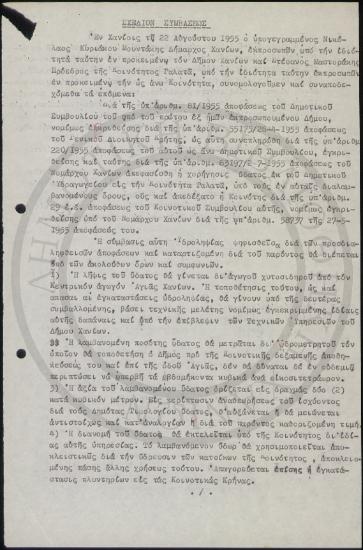 ΣΧΕΔΙΟΝ ΣΥΜΒΑΣΕΩΣ
Ἐν Χανίοις τῇ 22 Αὐγούστου 1955 ὁ ὑπογεγραμμένος Νικό-
λαος Κυριάκου Μουντάκης Δήμαρχος Χανίων, ἐκπροσωπῶν ὑπό τήν ἰδιό-
τητα ταύτην ἐν προκειμένῳ τόν Δῆμον Χανίων καί Στέφανος Μαστοράκης
Πρόεδρος τῆς Κοινότητος Γαλατᾶ, ὑπό τήν ἰδιότητα ταύτην ἐκπροσωπῶν
ἐν προκειμένῳ τήν ὡς ἄνω Κοινότητα, συνομολογοῦμεν καί συναποδε-
χόμεθα τά ἑπόμενα:
Διά τῆς ὑπ'ἀριθμ. 81/1955 ἀποφάσεως τοῦ Δημοτικοῦ
Συμβουλίου τοῦ ὑπό τοῦ πρώτου ἐξ ἡμῶν ἐκπροσωπουμένου Δήμου,
νομίμως ἐγκριθείσης διά τῆς ὑπ'ἀριθμ. 55173/28-4-1955 ἀποφάσεως
τοῦ Γενικοῦ Διοικητοῦ Κρήτης, ὡς αὕτη συνεπληρώθη διά τῆς ὑπ'ἀριθμ.
220/1955 ἀποφάσεως τοῦ αὐτοῦ ὡς ἄνω Δημοτικοῦ Συμβουλίου, ἐγκρι-
θείσης καί ταύτης διά τῆς ὑπ'ἀριθμ. 63197/2-7-1955 ἀποφάσεως τοῦ
Νομάρχου Χανίων ἀπεφασίσθη ἡ χορήγησις ὕδατος ἐκ τοῦ Δημοτικοῦ
Ὑδραγωγείου εἰς τήν Κοινότητα Γαλατᾶ, ὑπό τούς ἐν αὐταῖς διαλαμ-
βανομένους ὅρους, οὕς καί ἀπεδέξατο ἡ Κοινότης διά τῆς ὑπ'ἀριθμ.
29 ἐ.ἔ. ἀποφάσεως τοῦ Κοινοτικοῦ Συμβουλίου αὐτῆς, νομίμως ἐγκρι-
θείσης ὑπό τοῦ Νομάρχου Χανίων διά τῆς ὑπ'ἀριθμ. 58737 τῆς 27-5-
1955 ἀποφάσεως του.
Ἡ σύμβασις αὕτη Ὑδροληψίας ψηφισθεῖσα διά τῶν προσδια-
ληφθεισῶν ἀποφάσεων καί καταρτιζομένη διά τοῦ παρόντος θά διέπεται
ὑπό τῶν ἀκολούθων ὅρων καί συμφωνιῶν.
1) Ἡ λῆψις τοῦ ὕδατος θά γίνεται δι'ἀγωγοῦ χυτοσιδηροῦ ἀπό τόν
Κεντρικόν ἀγωγόν Ἁγιᾶς Χανίων. Ἡ τοποθέτησις τούτου, ὡς καί
ἅπασαι αἱ ἐγκαταστάσεις ὑδροληψίας, θά γίνουν ὑπό τῆς δευτέρας
συμβαλλομένης, βάσει τεχνικῆς μελέτης νομίμως ἐγκεκριμένης ἰδίαις
αὐτῆς δαπάναις καί ὑπό τήν ἐπίβλεψιν τῶν Τεχνικῶν Ὑπηρεσιῶν τοῦ
Δήμου Χανίων.
Ἡ λαμβανομένη ποσότης ὕδατος θά μετρᾶται δι'ὑδρομετρητοῦ τόν
ὁποῖον θά τοποθετήσῃ ὁ Δῆμος πρό τῆς Κοινοτικῆς δεξαμενῆς ἀποθη-
κεύσεώς του καί ἐπί τῆς ὁδοῦ Ἁγιᾶς, δέν θά δύναται δέ ἐν οὐδεμιᾷ
περιπτώσει νά ὑπερβῇ τά ἑβδομήκοντα κυβικά ἀνά εἰκοσιτετράωρον.
3) Ἡ ἀξία τοῦ λαμβανομένου ὕδατος ὁρίζεται εἰς δραχμάς δύο (2)
κατά κυβικόν μέτρον. Εἰς περίπτωσιν ἀναθεωρήσεως τοῦ ἰσχύοντος
διά τούς Δημότας Τιμολογίου ὕδατος, θ'αὐξάνεται ἤ θά μειώνεται
ἀντιστοίχως καί κατ'ἀναλογίαν ἡ διά τοῦ παρόντος καθοριζομένη τιμή.
4) Ἡ διανομή τοῦ ὕδατος θά ἐκτελεῖται ὑπό τῆς Κοινότητος δι'ἰδίας
αὐτῆς ὑπηρεσίας. Τό λαμβανόμενον ὕδωρ θά χρησιμοποιεῖται ἀπο-
κλειστικῶς διά τήν ὕδρευσιν τῶν κατοίκων τῆς Κοινότητος, ἀποκλειο-
μένης πάσης ἄλλης χρήσεως τούτου. Ἀπαγορεύεται ἐπίσης ἡ ἐγκατά-
στασις πλυντηρίων εἰς τάς Κοινοτικάς Κρήνας.
./.